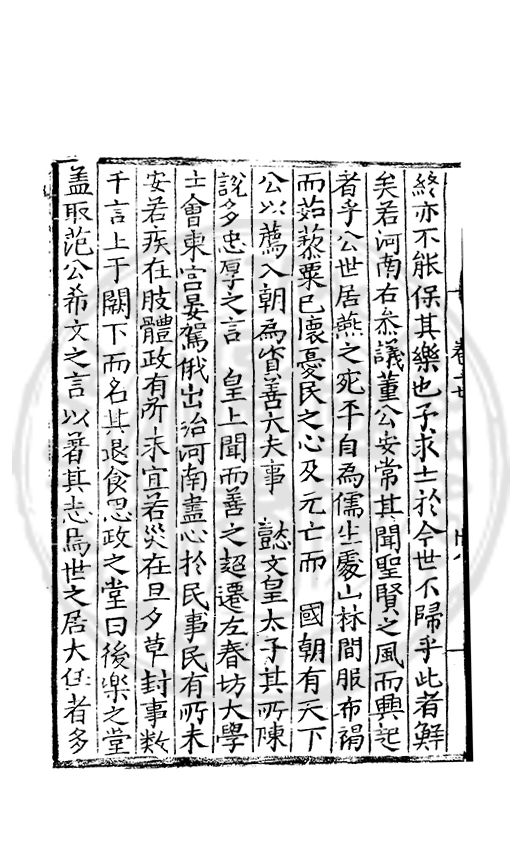 終亦不能保其樂也予求士於今世不歸乎此者鮮
矣若河南右叅議董公安常其聞聖賢之風而興起
者乎公世居燕之宛平自為儒生處山林間服布褐
而茹藜粟已懷憂民之心及元亡而 國朝有天下
公以薦入朝為資善大夫事 懿文皇太子其所陳
說多忠厚之言 皇上聞而善之超遷左春坊大學
士會東宮晏駕俄出治河南盡心於民事民有所未
安若疾在肢體政有所未宜若災在旦夕草封事數
千言上于闕下而名其退食思政之堂曰後樂之堂
盖取范公希文之言以著其志焉世之居大位者多